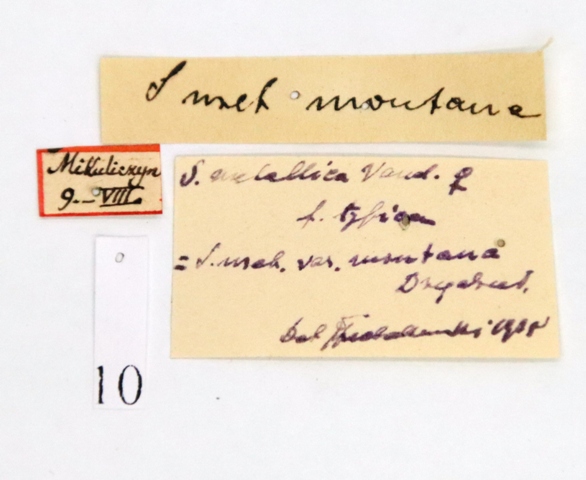 S met montana
Mikuliczyn
9.-VIII.
S. metallica Vand. ♀
f. typica
= S. met. var. montana
Dzgdzul.
Det 1935
10